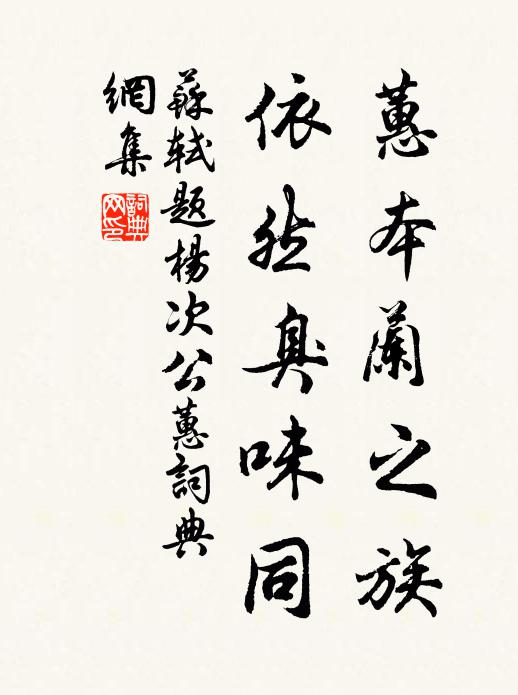 蕙本蘭之族
依然臭味同
蘇軾題楊次公蕙詞典
網集
詞典
网印